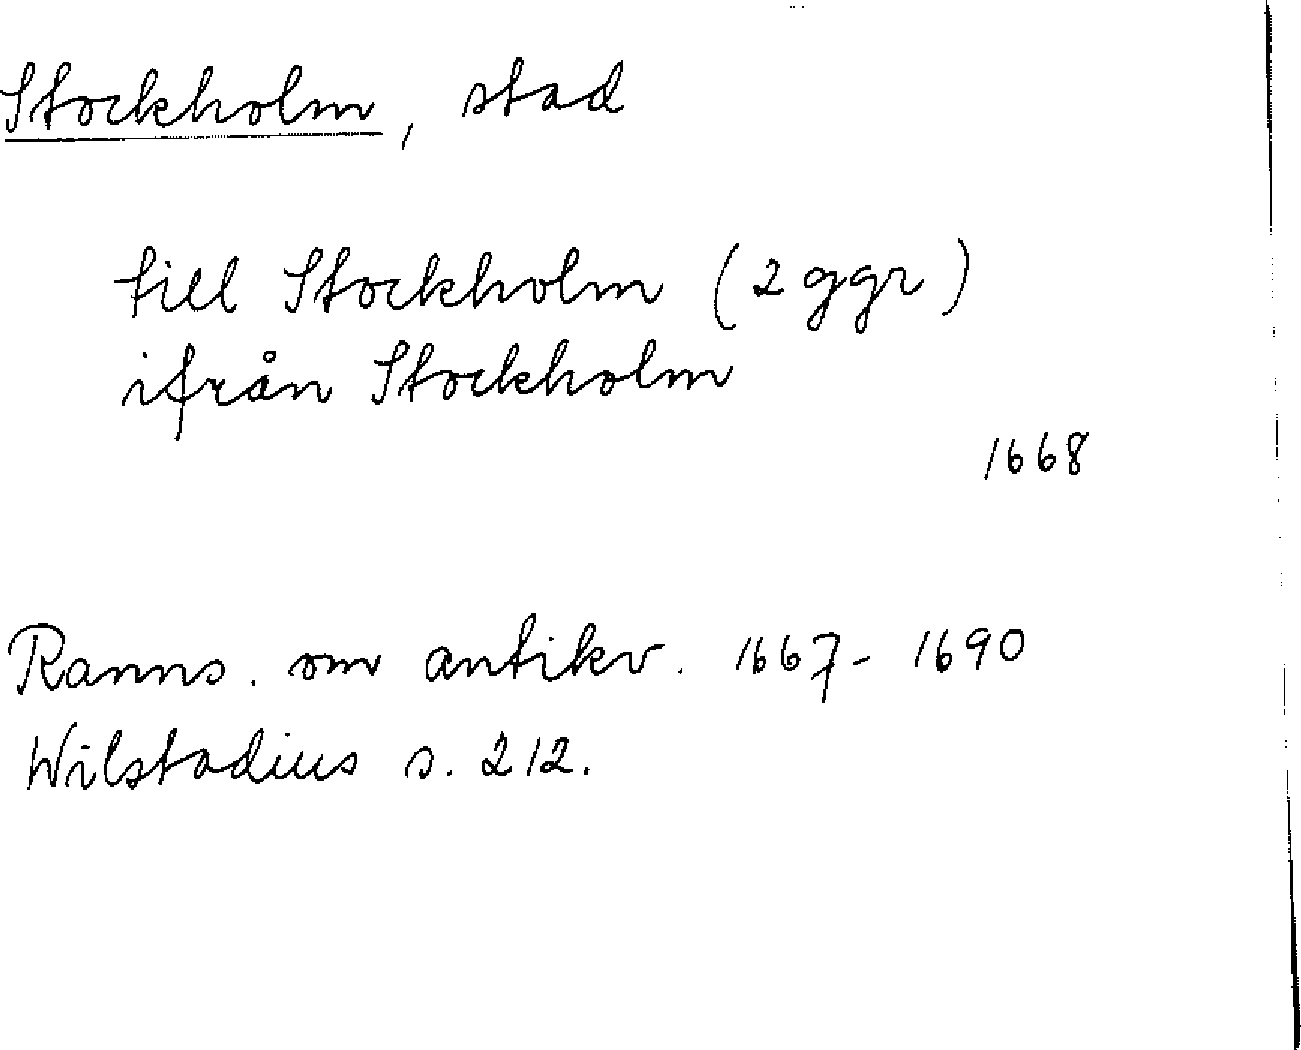 Stockholm, stad
till Stockholm (2 ggr)
ifrån Stockholm
1668
Ranns. om antikv. 1667-1690
Wilstadius s. 212.